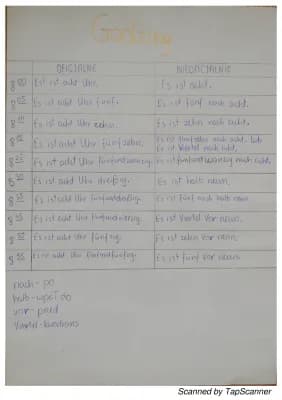 Godziny
OFICJALNIE NIEOFICJALNIE
8 00 Est ist acht Uhr. Es ist acht.
8 05 Es ist acht Uhr fünf. Es ist fünf nach acht.
8 10 Es ist acht Uhr zehn. Es ist zehn nach acht.
8 15 Es ist acht Uhr fünfzehn. Es ist fünfzehn nach acht.
Es ist Viertel nach acht.
Es ist acht Uhr fünfundzwanzig. Es ist fünfundzwanzig nach acht.
8 30 Es ist acht Uhr dreißig. Es ist halb neun.
8 35 Es ist acht Uhr fünfunddreißig. Es ist fünf nach halb neun
8 45 Es ist acht Uhr fünfundvierzig. Es ist Viertel vor neun.
8 50 Es ist acht Uhr fünfzig. Es ist zehn vor neun.
8 55 Es ist acht Uhr fünfundfünfzig. Es ist fünf vor neun
nach - po
halb - wpół do
vor - przed
Viertel - kwadrans
Scanned by TapScanner